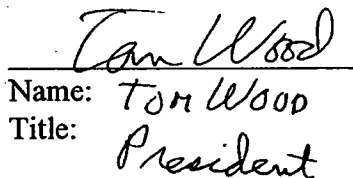 Tom Wood
Name: Tom Wood
Title:
President